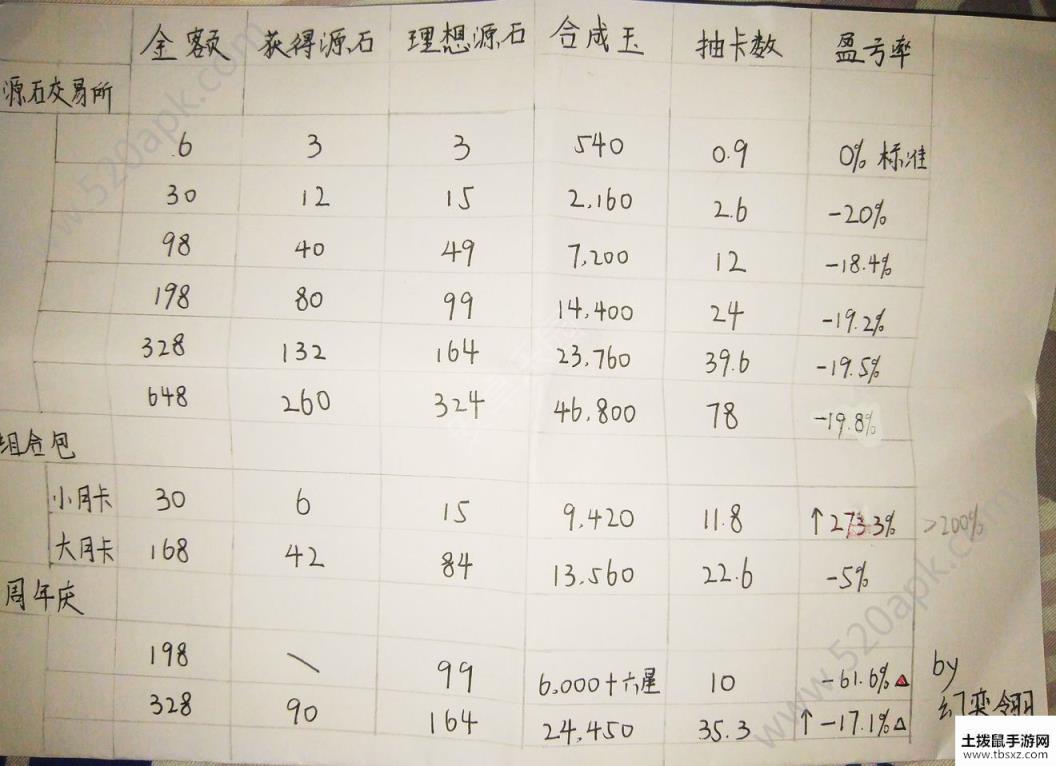 金额 获得源石 理想源石 合成玉 抽卡数 盈亏率
源石交易所
6 3 3 540 0.9 0% 标准
30 12 15 2,160 2.6 -20%
98 40 49 7,200 12 -18.4%
198 80 99 14,400 24 -19.2%
328 132 164 23,760 39.6 -19.5%
648 260 324 46,800 78 -19.8%
组合包
小月卡 30 6 15 9,420 11.8 ↑273.3% >200%
大月卡 168 42 84 13,560 22.6 -5%
周年庆
198 \ 99 6,000+六星 10 -61.6%
328 90 164 24,450 35.3 ↑-17.1%
by
幻奕翎羽
土拨鼠手游网
www.tbsxz.com
www.520apk.com
www.520apk.com